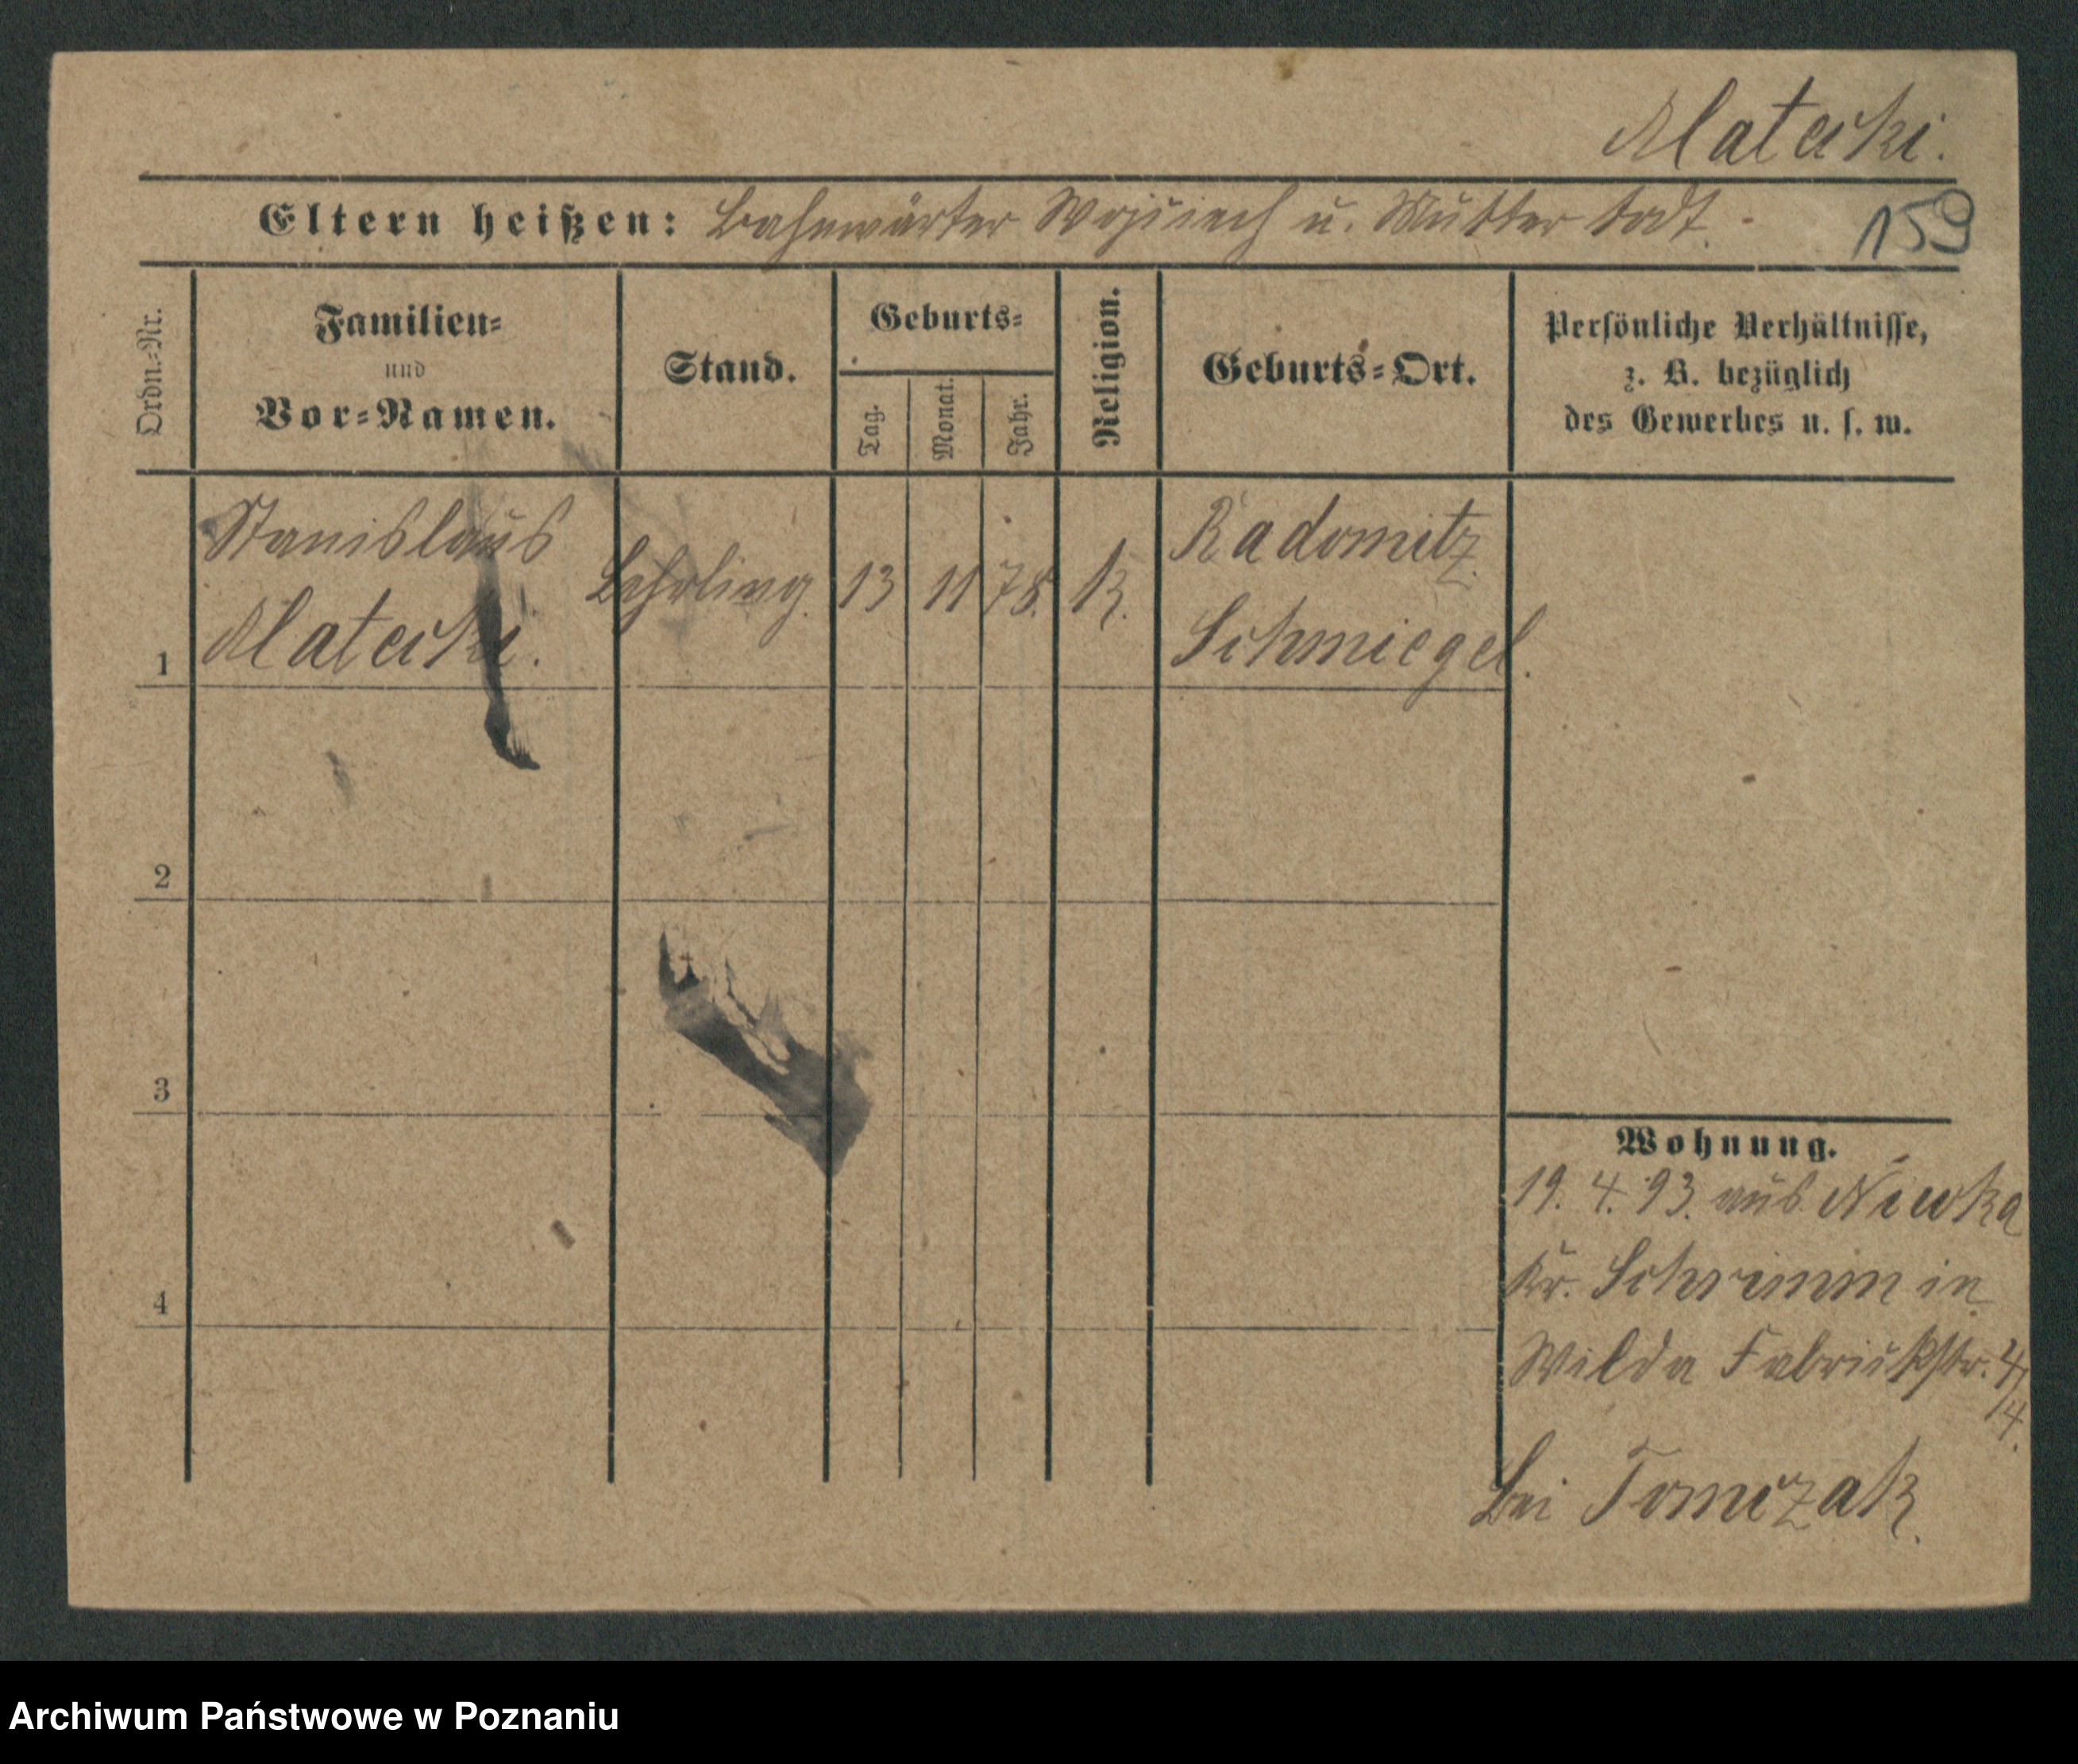 Matecki.
Eltern heißen: Bahnwärter Wojciech u. Mutter todt.
159
Ordn.-Nr.
Familien-
und
Vor-Namen.
Stand.
Geburts-
Tag.
Monat.
Jahr.
Religion.
Geburts-Ort.
Persönliche Verhältnisse,
z. B. bezüglich
des Gewerbes u. s. w.
Stanislaus
1 Matecki.
Lehrling. 13 11 78. K.
Radomitz
Schmiegel.
2
3
4
Wohnung.
19. 4. 93. aus Niwka
Kr. Schrimm in
Wilda Fabrickstr. 4/
14.
bei Tomczak.
Archiwum Państwowe w Poznaniu